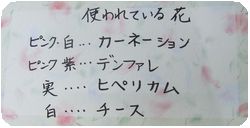 使われている花
ピンク.白…カーネーション
ピンク紫…デンファレ
実‥‥ヒペリカム
白‥‥チース